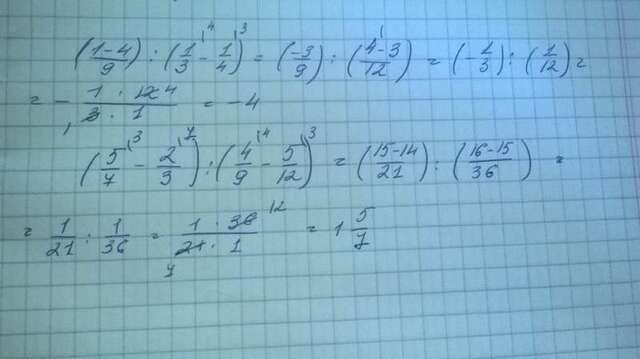 ((1-4)/9) : (1/3 ⁽⁴ - 1/4 ⁽³) = (-3/9) : ((4-3)/12) = (-1/3) : (1/12) =
= - (1 · 12 4)/(3 · 1) = -4
(5/7 ⁽³ - 2/3 ⁽⁷) : (4/9 ⁽⁴ - 5/12 ⁽³) = ((15-14)/21) : ((16-15)/36) =
= 1/21 : 1/36 = (1 · 36 12)/(21 7 · 1) = 1 5/7